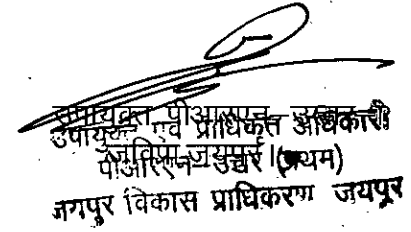 उपायुक्त पीआरएन- उत्तर
उपायुक्त एवं प्राधिकृत अधिकारी
जविप्रा जयपुर।
पीआरएन-उत्तर (प्रथम)
जयपुर विकास प्राधिकरण जयपुर